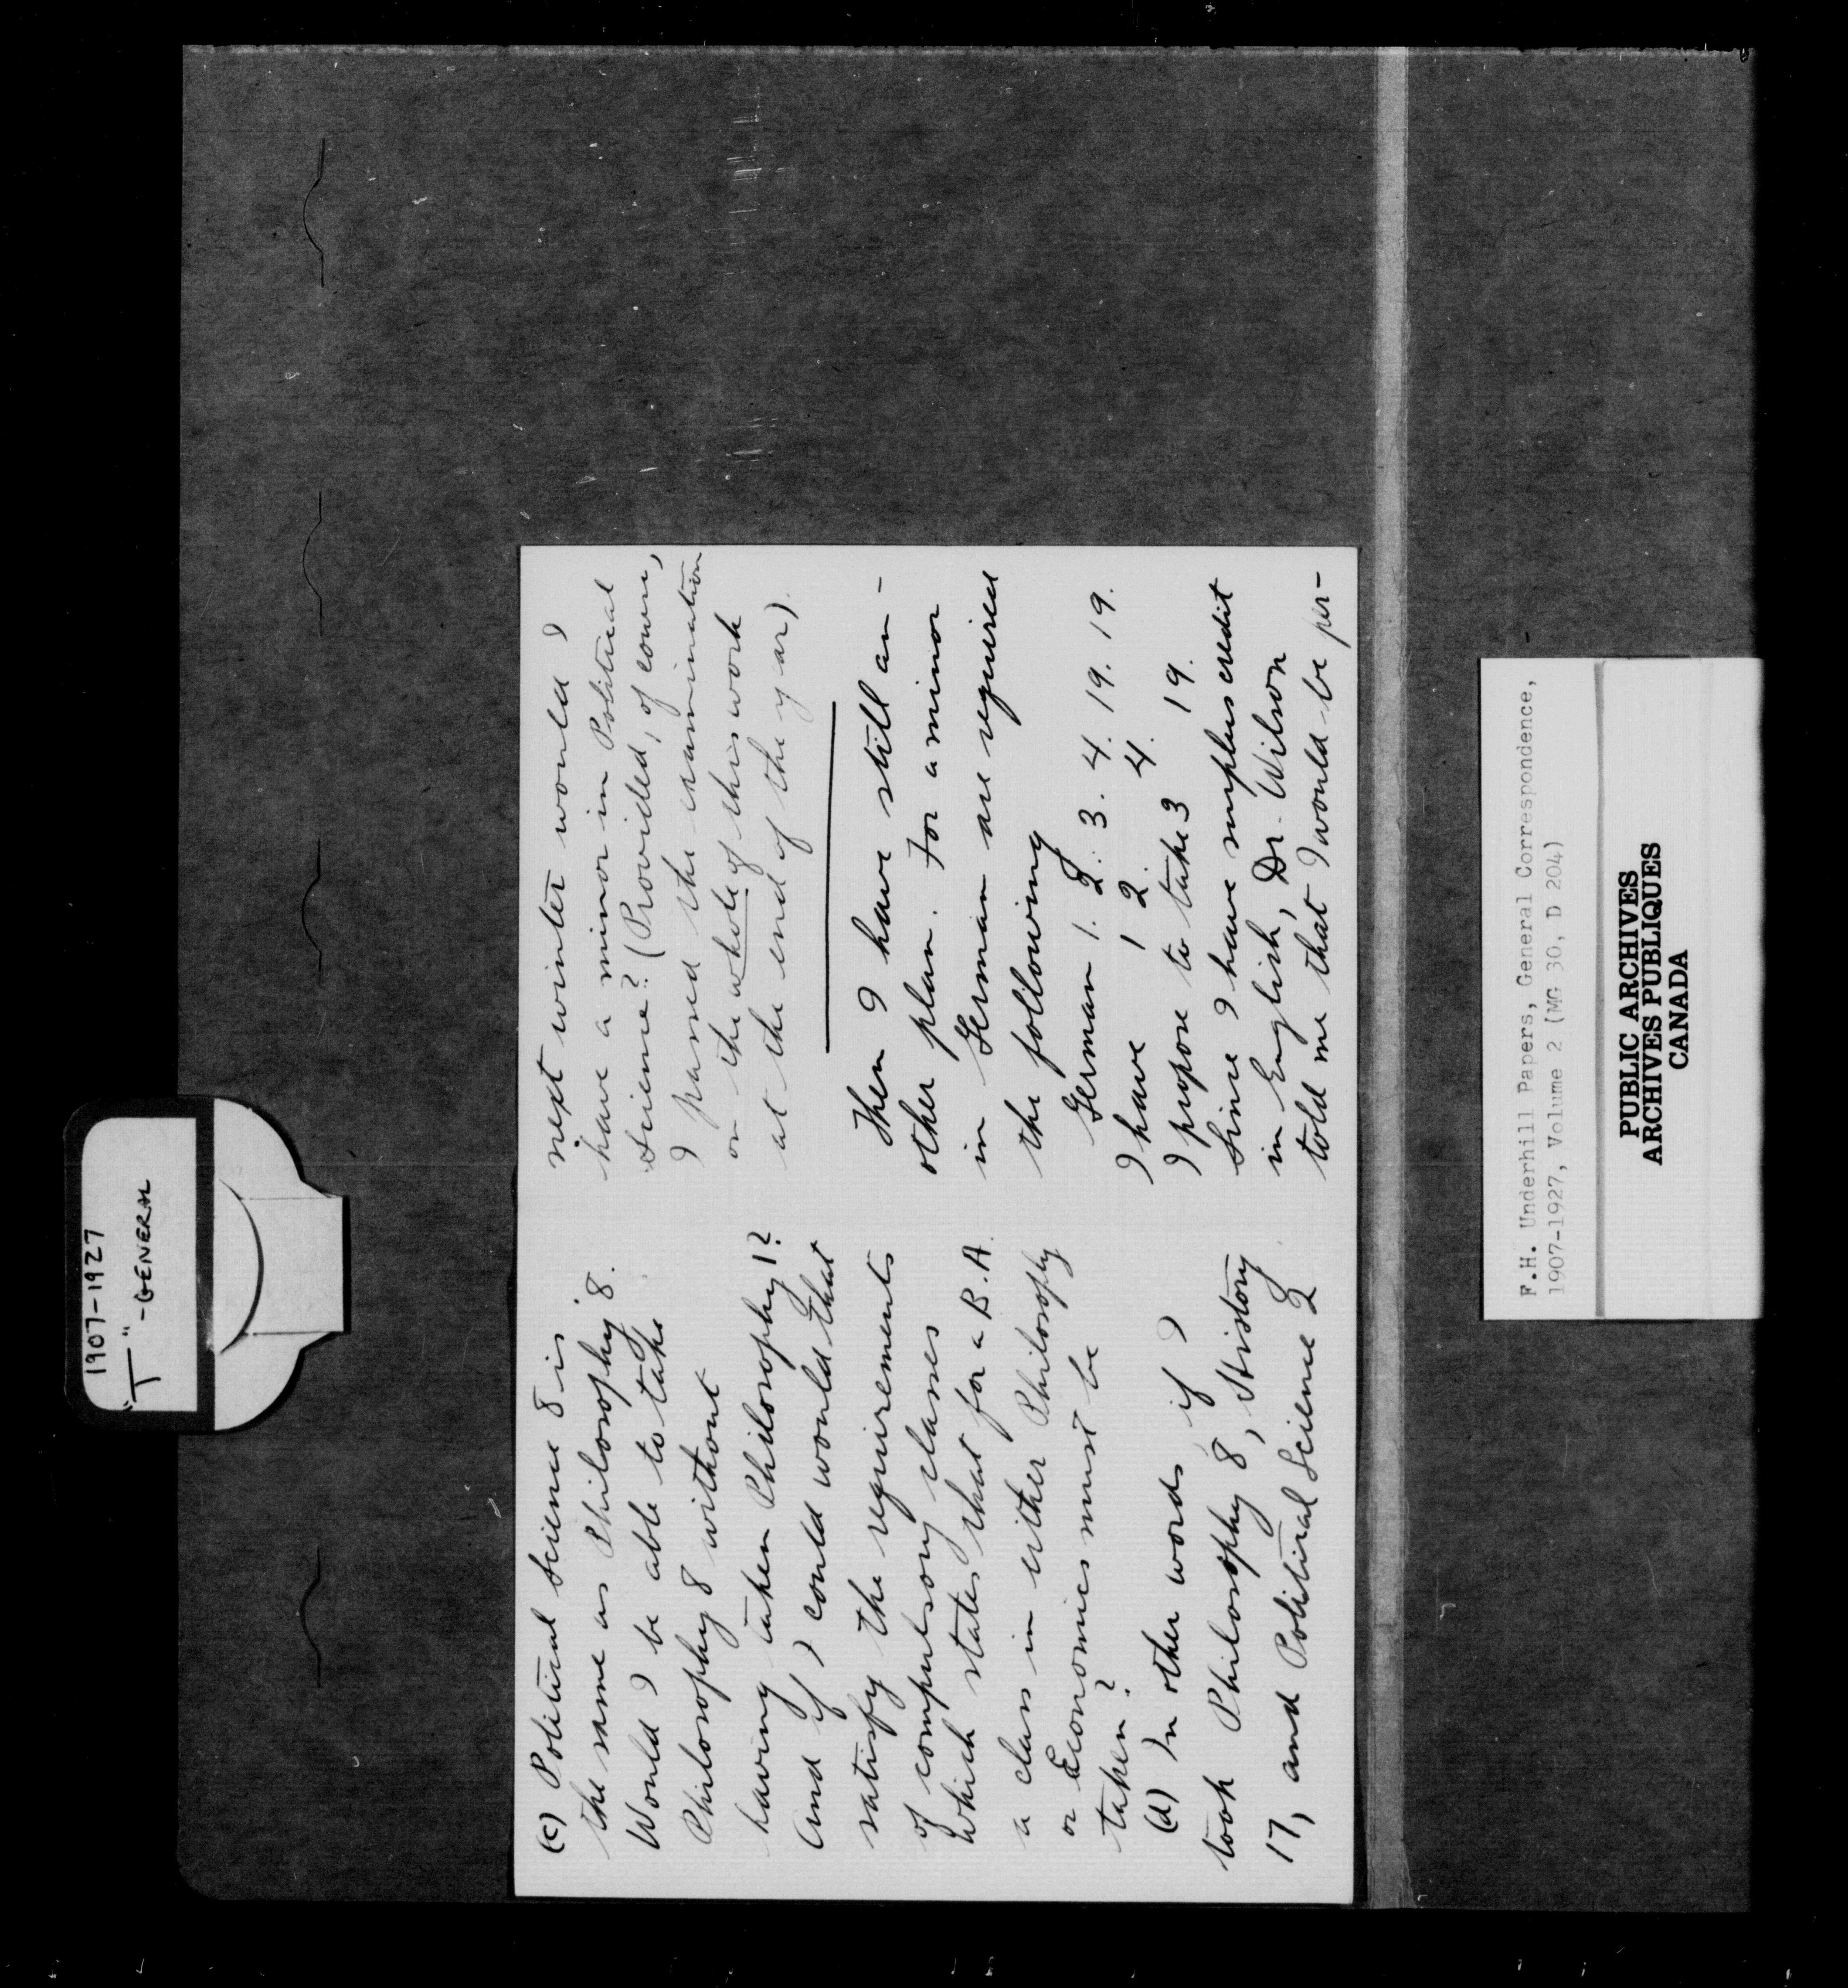 1907-1927
"T" - GENERAL
(c) Political Science 8 is
the same as Philosophy 8.
Would I be able to take
Philosophy 8 without
having taken Philosophy 1?
And if I could would that
satisfy the requirements
of compulsory classes
which states that for a B.A.
a class in either Philosophy
or Economics must be
taken?
(d) In other words if I
took Philosophy 8, History
17, and Political Science 2
next winter would I
have a minor in Political
Science? (Provided, of course,
I passed the examination
on the whole of this work
at the end of the year).
Then I have still an-
other plan. For a minor
in German are required
the following
German 1. 2. 3. 4. 19. 19.
I have 1 2.
I propose to take 3 4. 19.
Since I have surplus credit
in English, Dr. Wilson
told me that I would be per-
F.H. Underhill Papers, General Correspondence,
1907-1927, Volume 2 (MG 30, D 204)
PUBLIC ARCHIVES
ARCHIVES PUBLIQUES
CANADA